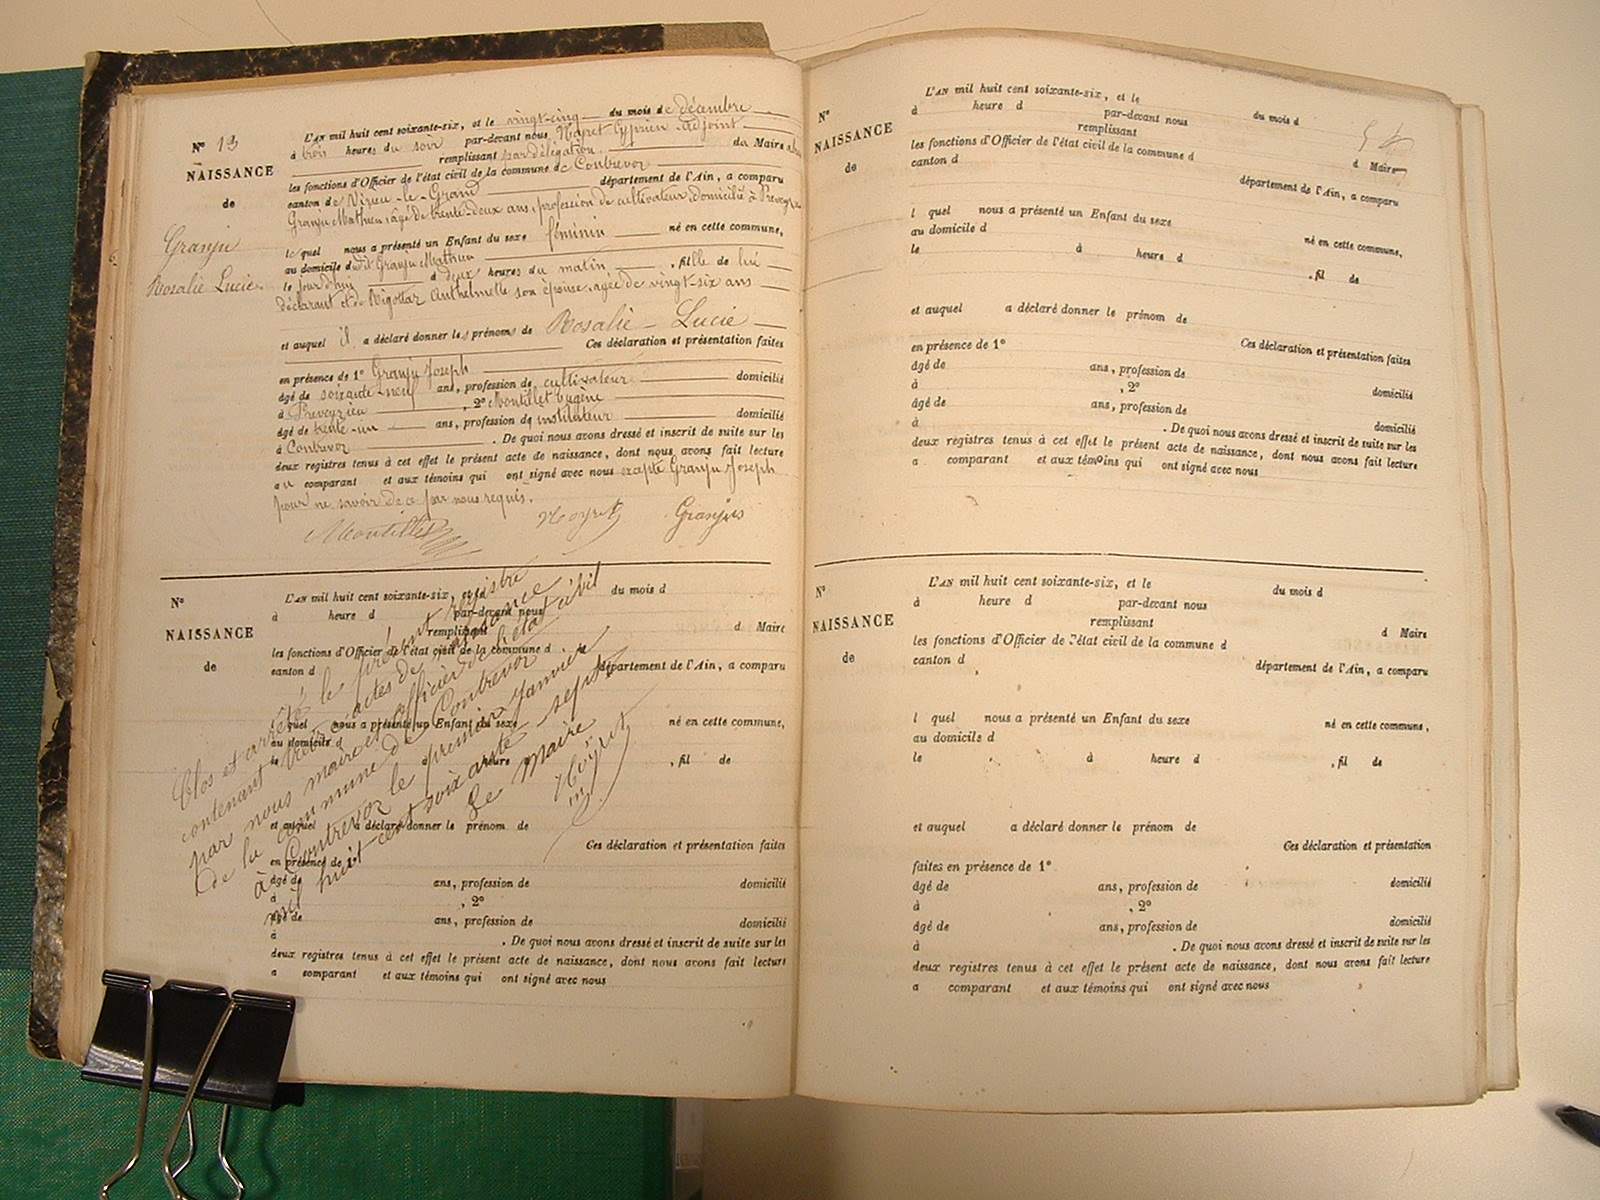 Nº 13
NAISSANCE
de
Granju
Rosalie Lucie
L'AN mil huit cent soixante-six, et le vingt-cinq du mois de décembre
à trois heures du soir par-devant nous Noyret Cyprien adjoint
remplissant par délégation du Maire
les fonctions d'Officier de l'état civil de la commune de Contrevoz
canton de Virieu-le-Grand département de l'Ain, a comparu
Granju Mathieu, âgé de trente-deux ans, profession de cultivateur, domicilié à Preveyzieu
lequel nous a présenté un Enfant du sexe féminin né en cette commune,
au domicile dudit Granju Mathieu
le jour d'hui à deux heures du matin , fille de lui
déclarant et de Rigottaz Anthelmette son épouse, agée de vingt-six ans
et auquel il a déclaré donner les prénoms de Rosalie-Lucie
Ces déclaration et présentation faites
en présence de 1º Granju Joseph
âgé de soixante-neuf ans, profession de cultivateur domicilié
à Preveyzieu , 2º Montillet Eugène
âgé de trente-un ans, profession d'instituteur domicilié
à Contrevoz . De quoi nous avons dressé et inscrit de suite sur les
deux registres tenus à cet effet le présent acte de naissance, dont nous avons fait lecture
au comparant et aux témoins qui ont signé avec nous excepté Granju Joseph
pour ne savoir de ce par nous requis.
Montillet Noyret Granju
Nº
NAISSANCE
de
L'AN mil huit cent soixante-six, et le du mois d
à heure d par-devant nous
remplissant d Maire
les fonctions d'Officier de l'état civil de la commune d
canton d département de l'Ain, a comparu
l quel nous a présenté un Enfant du sexe né en cette commune,
au domicile d
le à heure d , fil de
et auquel a déclaré donner le prénom de
Ces déclaration et présentation faites
en présence de 1º
âgé de ans, profession de domicilié
à , 2º
âgé de ans, profession de domicilié
à . De quoi nous avons dressé et inscrit de suite sur les
deux registres tenus à cet effet le présent acte de naissance, dont nous avons fait lecture
a comparant et aux témoins qui ont signé avec nous
Clos et arrêté le présent registre
contenant treize actes de naissance
par nous maire et officier de l'état civil
de la commune de Contrevoz
à Contrevoz le premier janvier
mil huit cent soixante sept
Le Maire
Noyret
Nº
NAISSANCE
de
L'AN mil huit cent soixante-six, et le du mois d
à heure d par-devant nous
remplissant d Maire
les fonctions d'Officier de l'état civil de la commune d
canton d département de l'Ain, a comparu
l quel nous a présenté un Enfant du sexe né en cette commune,
au domicile d
le à heure d , fil de
et auquel a déclaré donner le prénom de
Ces déclaration et présentation faites
en présence de 1º
âgé de ans, profession de domicilié
à , 2º
âgé de ans, profession de domicilié
à . De quoi nous avons dressé et inscrit de suite sur les
deux registres tenus à cet effet le présent acte de naissance, dont nous avons fait lecture
a comparant et aux témoins qui ont signé avec nous
Nº
NAISSANCE
de
L'AN mil huit cent soixante-six, et le du mois d
à heure d par-devant nous
remplissant d Maire
les fonctions d'Officier de l'état civil de la commune d
canton d département de l'Ain, a comparu
l quel nous a présenté un Enfant du sexe né en cette commune,
au domicile d
le à heure d , fil de
et auquel a déclaré donner le prénom de
Ces déclaration et présentation
faites en présence de 1º
âgé de ans, profession de domicilié
à , 2º
âgé de ans, profession de domicilié
à . De quoi nous avons dressé et inscrit de suite sur les
deux registres tenus à cet effet le présent acte de naissance, dont nous avons fait lecture
a comparant et aux témoins qui ont signé avec nous